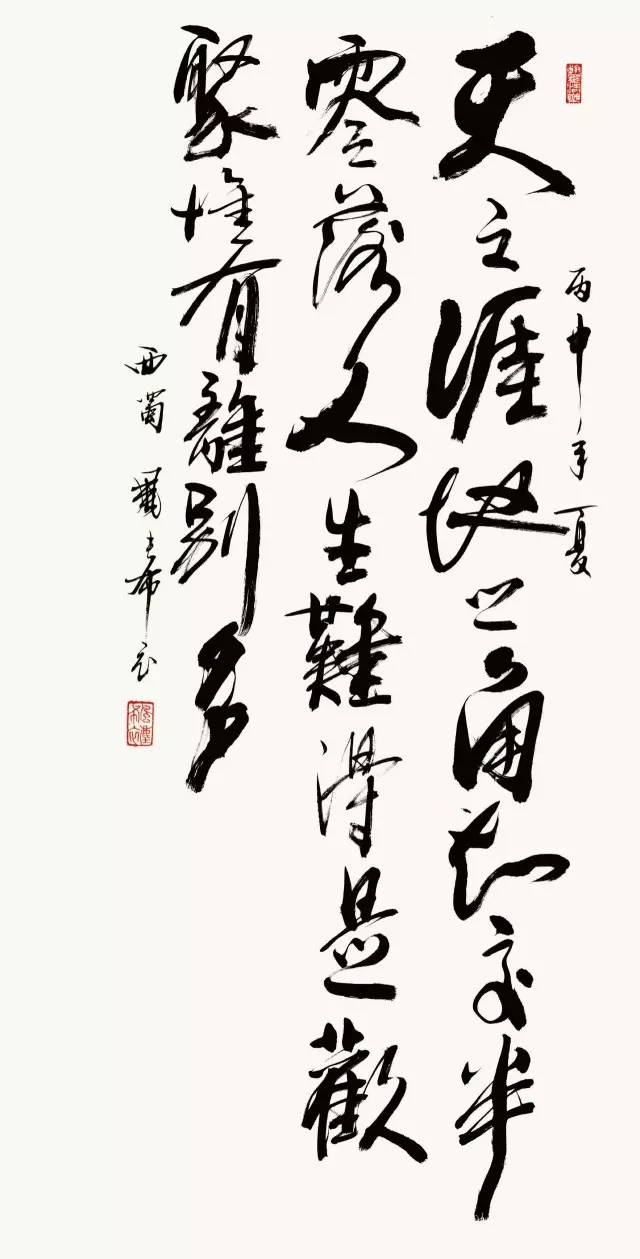 丙申年夏
天之涯地之角知交半
零落人生難得是歡
聚惟有離別多
西蜀